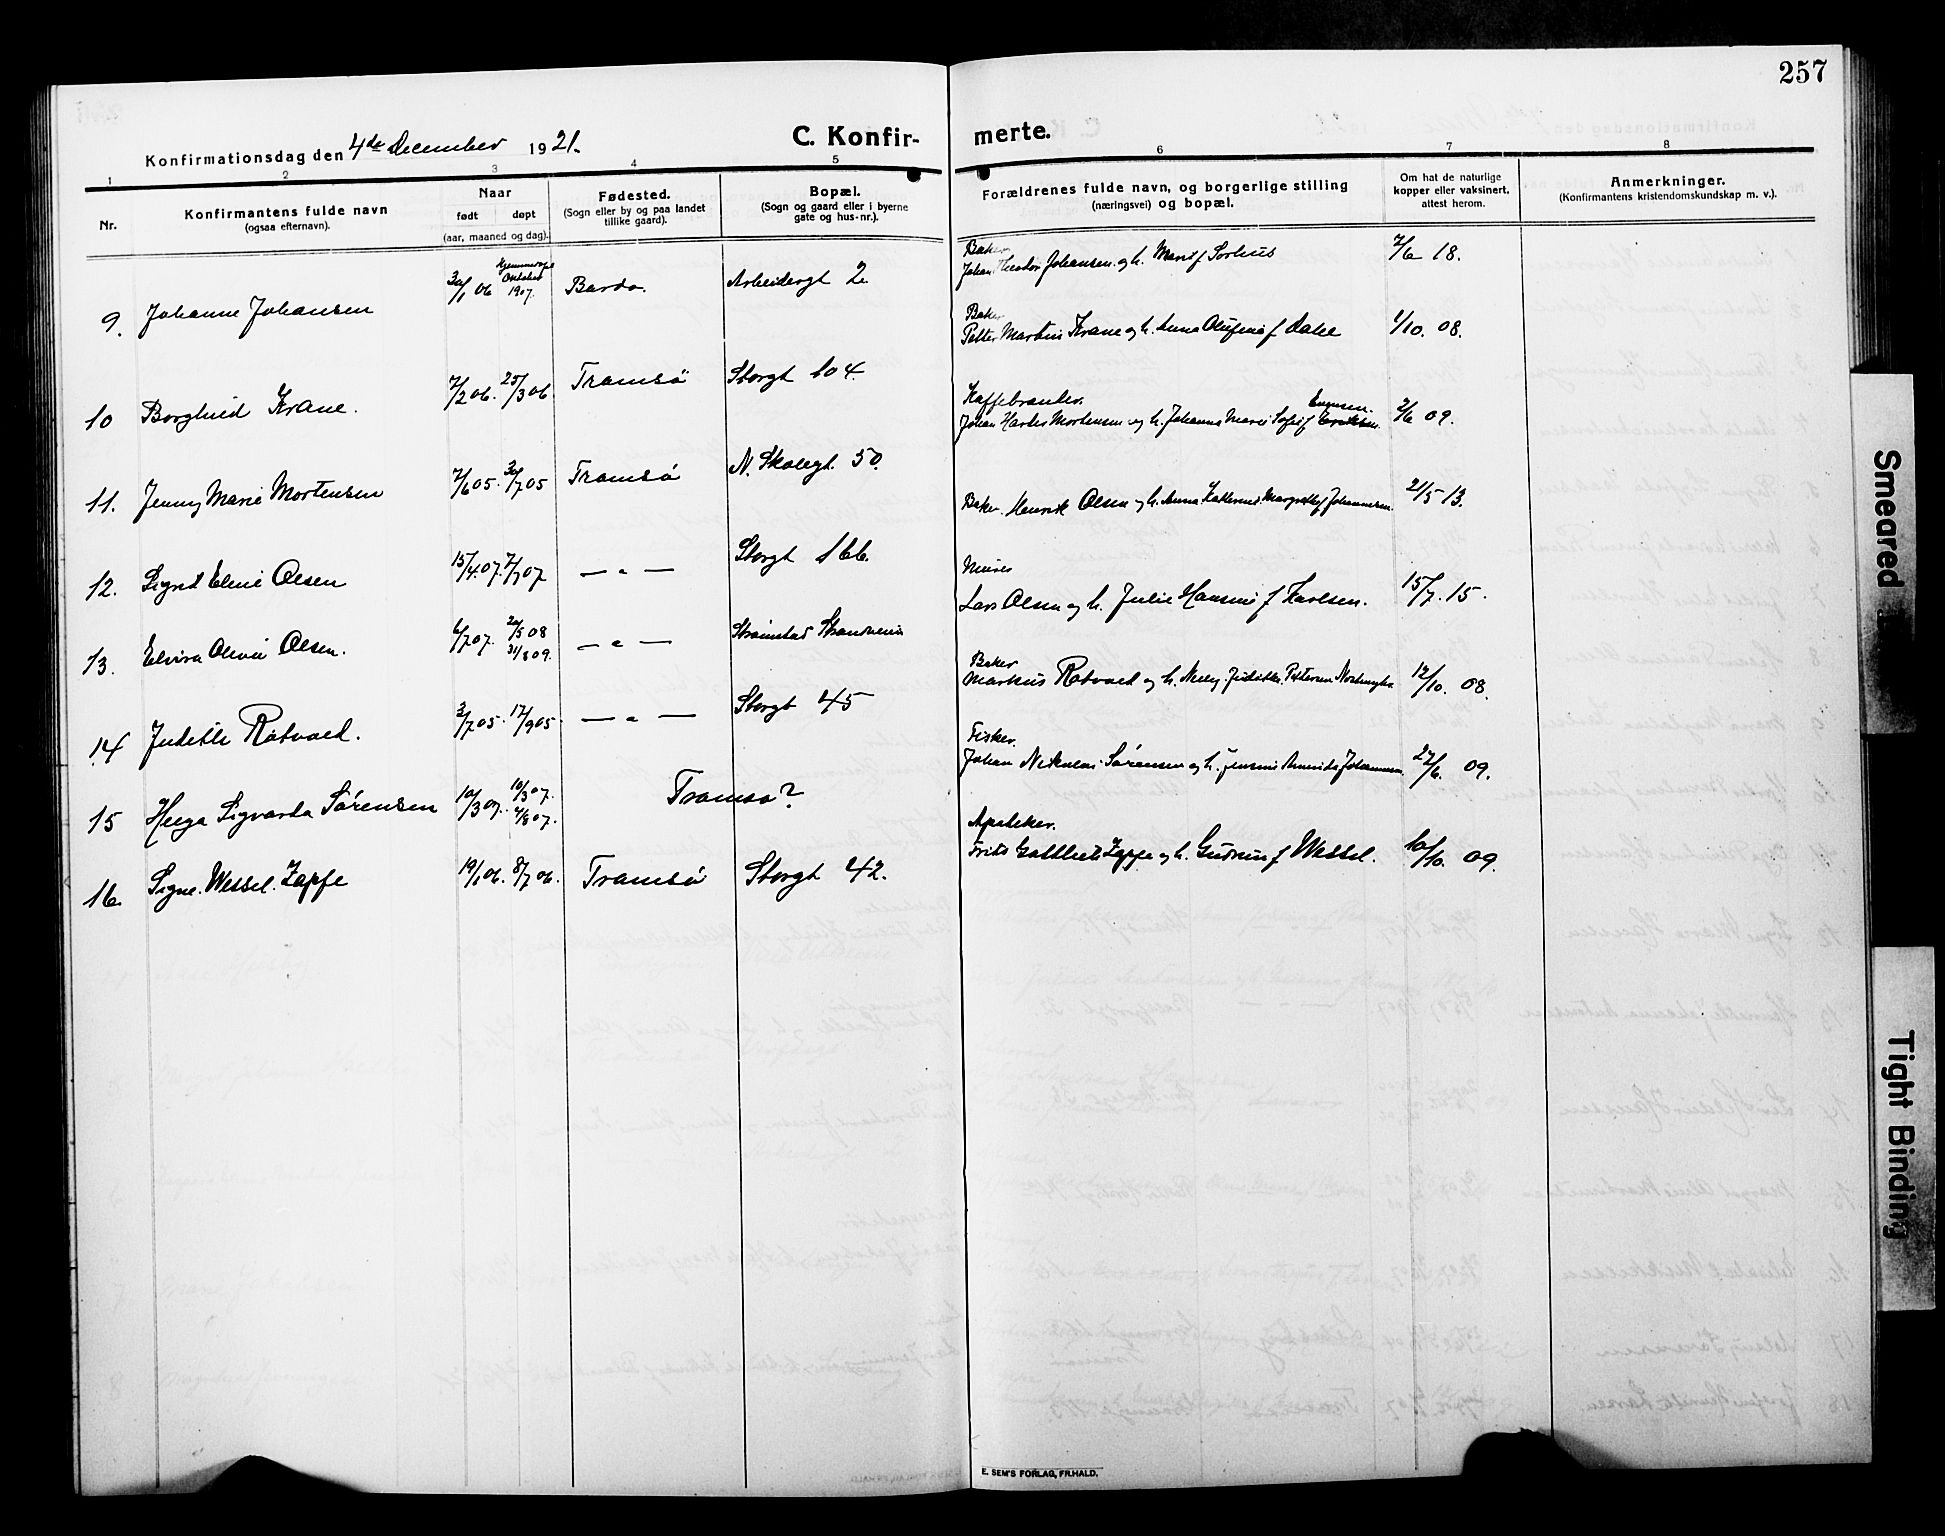 257
Konfirmationsdag den 4de December 1921.
C. Konfirmerte.
1 2 3 4 5 6 7 8
Nr.
Konfirmantens fulde navn
(ogsaa efternavn).
Naar
født døpt
(aar, maaned og dag).
Fødested.
(Sogn eller by og paa landet
tillike gaard).
Bopæl.
(Sogn og gaard eller i byerne
gate og hus-nr.).
Forældrenes fulde navn, og borgerlige stilling
(næringsvei) og bopæl.
Om hat de naturlige
kopper eller vaksinert,
attest herom.
Anmerkninger.
(Konfirmantens kristendomskundskap m. v.).
9. Johanne Johansen 30/1 06 Hjemmedøpt Oktober 1907. Bardo. Arbeidergt 2. Baker Johan Theodor Johansen og h. Marie f Sørhus 7/6 18.
10 Borghild Krane. 7/2 06. 25/3 06 Tromsö Storgt 104. Baker Petter Martin Krane og h. Anna Olufine f Dahl 1/10. 08.
11. Jenny Marie Mortensen 7/6 05. 30/7 05 Tromsö N. Skolegt. 50. Kaffebrænder. Johan Mortensen og h. Johanna Marie Sofie f Enginsen. 2/6 09.
12. Sigrid Eline Olsen 15/4. 07. 7/7 07 — " — Storgt 166. Baker. Henrik Olsen og h. Anna Katherine Margrethe f Johannesen. 21/5 13.
13. Elvira Olivie Olsen. 6/7 07. 20/5 08 31/8 09. — " — Strömstad Strandveien Murer Lars Olsen og h. Julie Hansine f Karlsen. 15/7. 15.
14 Judith Rotvold. 3/7 05. 17/9 05. — " — Storgt 45 Baker Markus Rotvold og h. Nelly Judithe Pettersen 12/10. 08.
15 Helga Sigvarda Sørensen 10/3 07. 10/3 07. 4/8 07. Tromsø? Fisker. Johan Nikolai Sörensen og h. Jensine Amanda Johannesen 27/6. 09.
16. Signe. Wessel. Zapfe 19/1 06. 8/7 06. Tromsö Storgt 42. Apoteker. Fritz Gottlieb Zapfe og h. Gudrun f Wessel. 10/10. 09.
E. SEM'S FORLAG, FR.HALD.
Smeared
Tight Binding